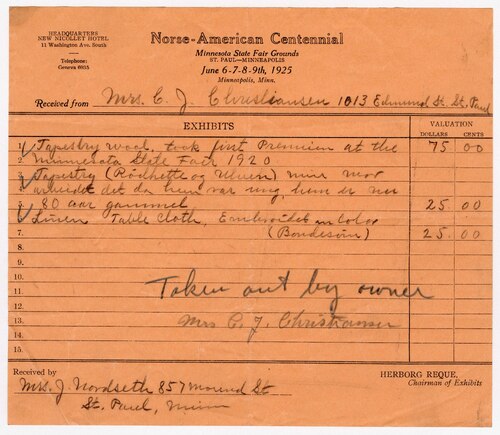 HEADQUARTERS
NEW NICOLLET HOTEL
11 Washington Ave. South
Telephone:
Geneva 6035
Norse-American Centennial
Minnesota State Fair Grounds
ST. PAUL—MINNEAPOLIS
June 6-7-8-9th, 1925
Minneapolis, Minn.
Received from Mrs. C. J. Christiansen 1013 Edmund St. St. Paul
EXHIBITS
VALUATION
DOLLARS CENTS
1. Tapestry wood, took first Premium at the 75 00
2. Minnesota State Fair 1920
3. Tapestry (Rödhette og Ulven) mine mor
4. arbeidet det da hun var ung, hun er nu
5. 80 aar gammel 25 00
6. Linen Table Cloth, Embroidet in Color
7. (Bondesöm) 25 00
8.
9.
10.
11. Taken out by owner
12. Mrs C. J. Christiansen
13.
14.
15.
Received by
Mrs. J Nordseth 857 Mound St
St. Paul, Minn
HERBORG REQUE,
Chairman of Exhibits